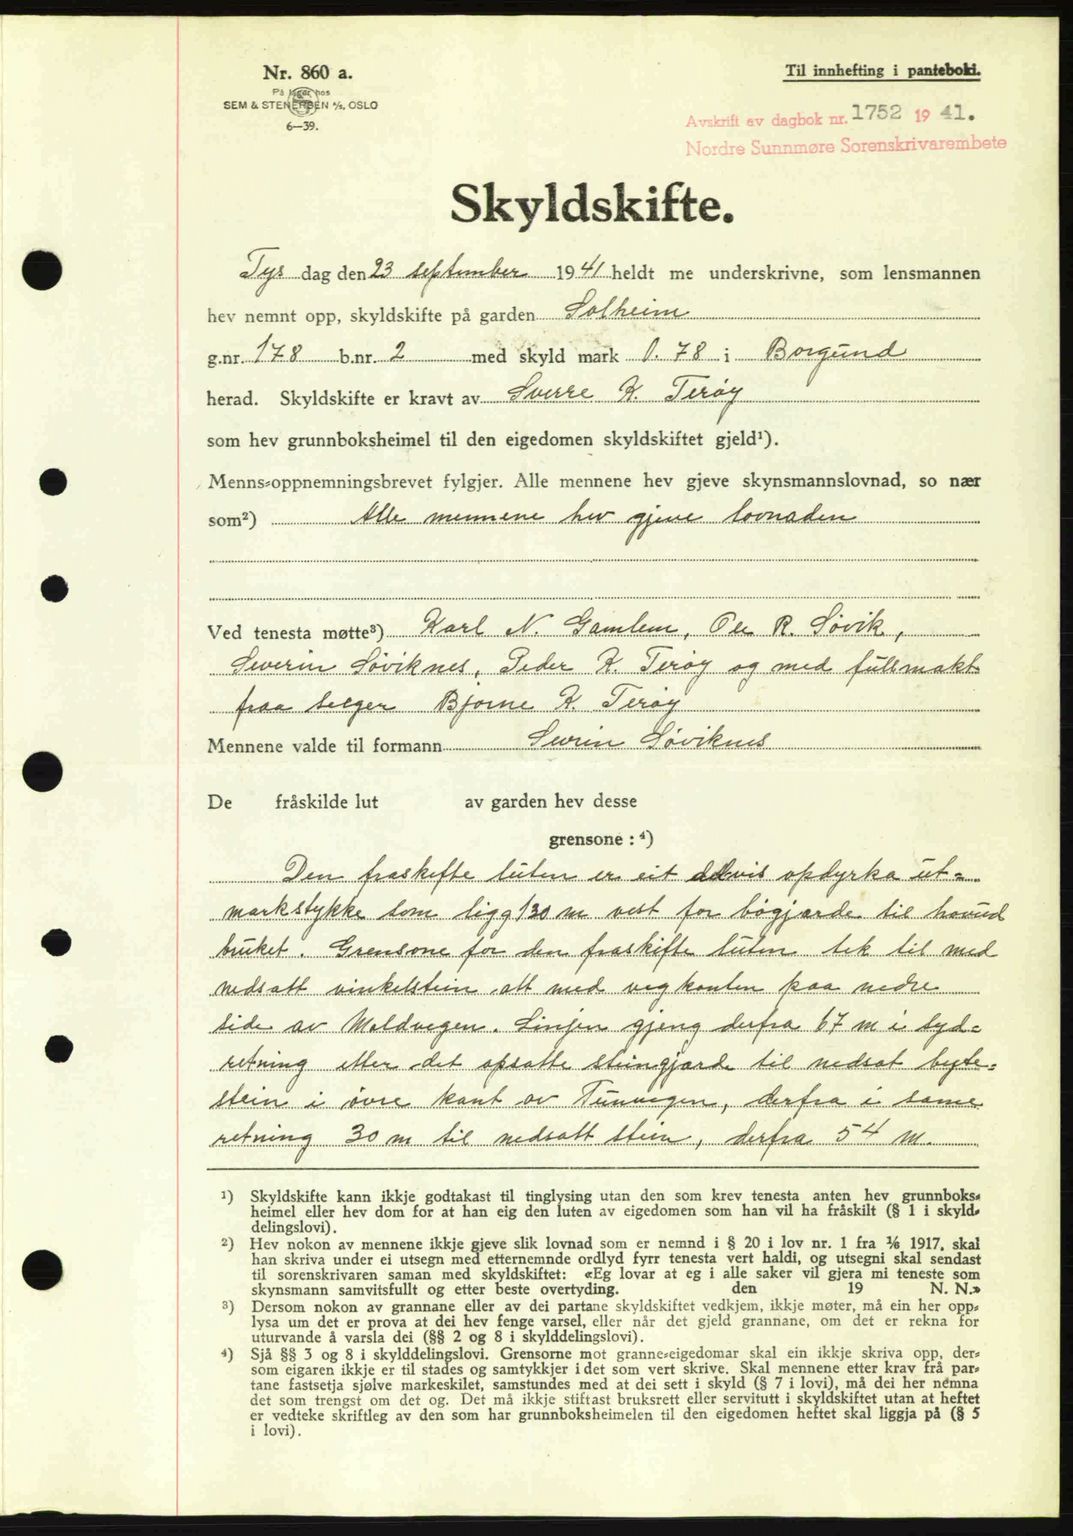 Nr. 860 a.
På lager hos
SEM & STENERSEN A/S, OSLO
6—39.
Til innhefting i panteboki.
Avskrift av dagbok nr. 1752 1941.
Nordre Sunnmøre Sorenskrivarembete
Skyldskifte.
Tys dag den 23 september 1941 heldt me underskrivne, som lensmannen
hev nemnt opp, skyldskifte på garden Solheim
g.nr. 178 b.nr. 2 med skyld mark 0.78 i Borgund
herad. Skyldskifte er kravt av Sverre K. Terøy
som hev grunnboksheimel til den eigedomen skyldskiftet gjeld¹).
Menns=oppnemningsbrevet fylgjer. Alle mennene hev gjeve skynsmannslovnad, so nær
som²) Alle mennene hev gjeve lovnaden
Ved tenesta møtte³) Karl N. Gamlem, Ole R. Søvik,
Severin Søviknes, Peder K. Terøy og med fullmakt
fraa selger Bjørne K. Terøy
Mennene valde til formann Sevrin Søviknes
De fråskilde lut av garden hev desse
grensone : ⁴)
Den fraskifte luten er eit delvis opdyrka ut=
markstykke som ligg 130 m vest for bøgjærde til hovud
bruket. Grensone for den fraskifte luten tek til med
nedsatt vinkelstein att med vegkanten paa nedre
side av Moldvegen. Linjen gjeng derfra 67 m i syd=
retning etter det opsatte steingjærde til nedsat byte=
stein i øvre kant av Tunvegen, derfra i same
retning 30 m til nedsatt stein, derfra 54 m.
¹) Skyldskifte kann ikkje godtakast til tinglysing utan den som krev tenesta anten hev grunnboks=
heimel eller hev dom for at han eig den luten av eigedomen som han vil ha fråskilt (§ 1 i skyld=
delingslovi).
²) Hev nokon av mennene ikkje gjeve slik lovnad som er nemnd i § 20 i lov nr. 1 fra 1/6 1917, skal
han skriva under ei utsegn med etternemnde ordlyd fyrr tenesta vert haldi, og utsegni skal sendast
til sorenskrivaren saman med skyldskiftet: «Eg lovar at eg i alle saker vil gjera mi teneste som
skynsmann samvitsfullt og etter beste overtyding. den 19 N. N.»
³) Dersom nokon av grannane eller av dei partane skyldskiftet vedkjem, ikkje møter, må ein her opp=
lysa um det er prova at dei hev fenge varsel, eller når det gjeld grannane, om det er rekna for
uturvande å varsla dei (§§ 2 og 8 i skylddelingslovi).
⁴) Sjå §§ 3 og 8 i skylddelingslovi. Grensorne mot granne=eigedomar skal ein ikkje skriva opp, der=
som eigaren ikkje er til stades og samtykkjer i det som vert skrive. Skal mennene etter krav frå par=
tane fastsetja sjølve markeskilet, samstundes med at dei sett i skyld (§ 7 i lovi), må dei her nemna
det som trengst om det og. Det må ikkje stiftast bruksrett eller servitutt i skyldskiftet utan at heftet
er vedteke skriftleg av den som har grunnboksheimelen til den eigedomen heftet skal liggja på (§ 5
i lovi).